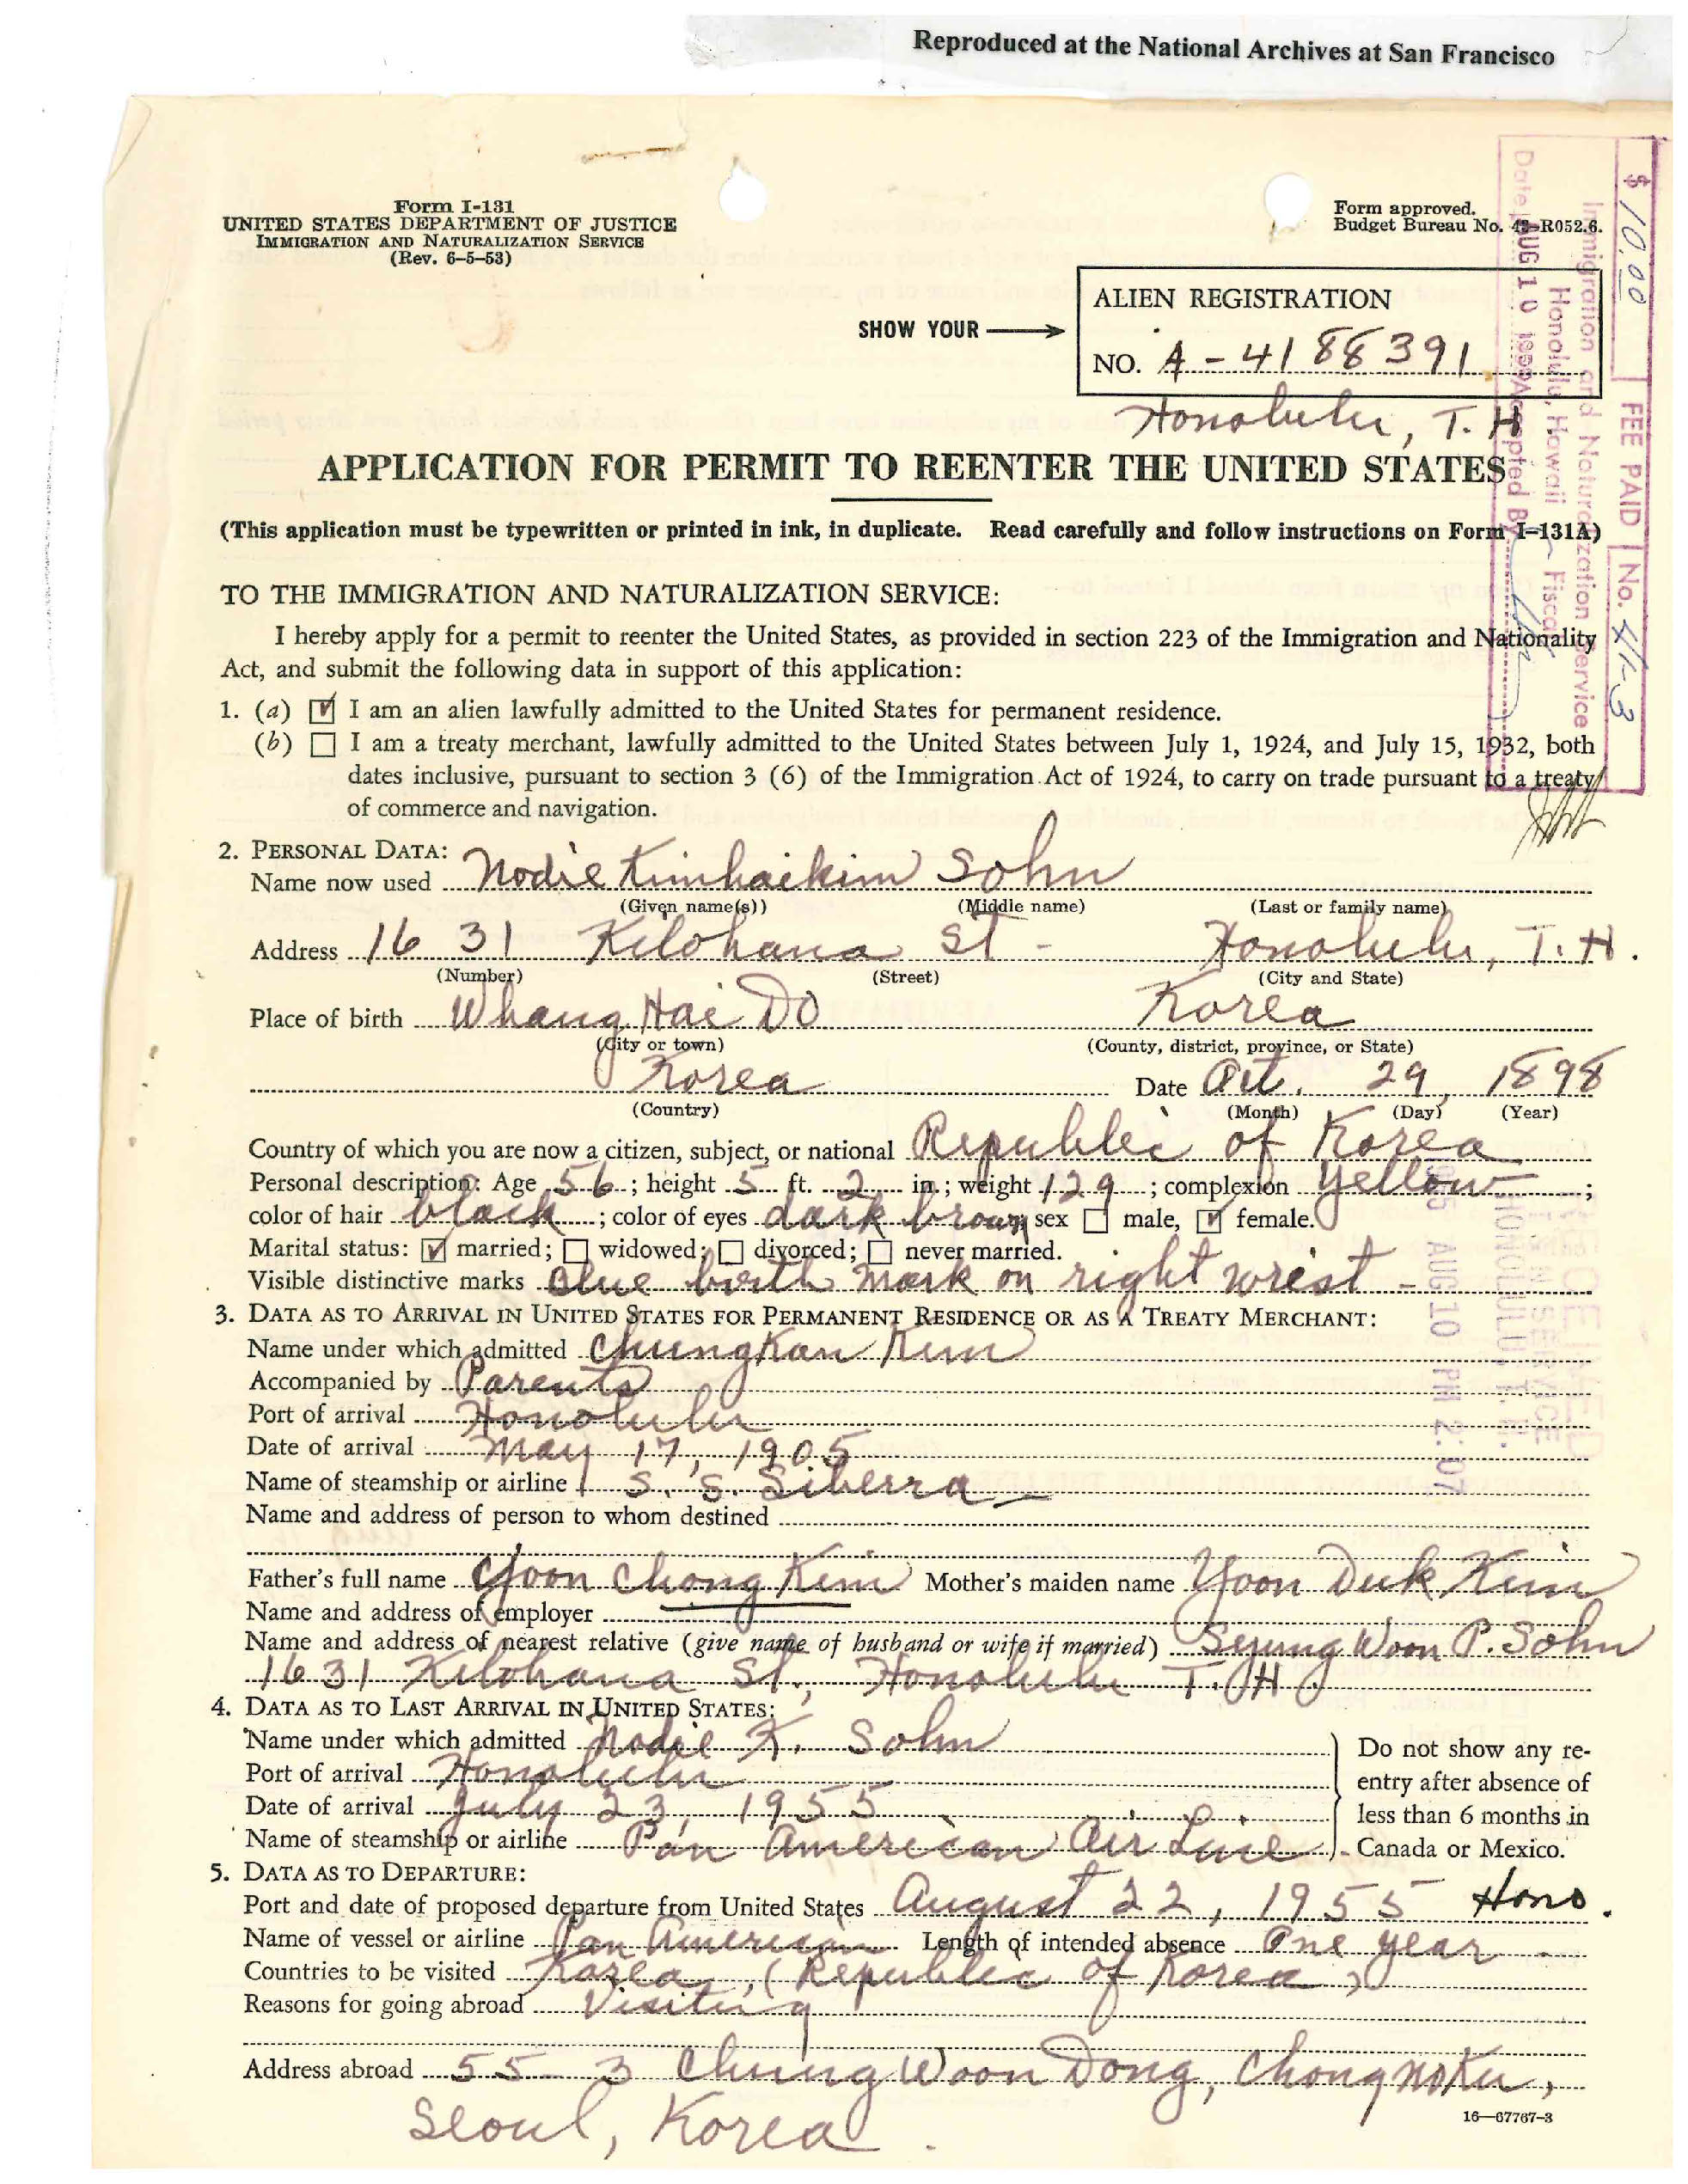 Reproduced at the National Archives at San Francisco
Form I-131
UNITED STATES DEPARTMENT OF JUSTICE
IMMIGRATION AND NATURALIZATION SERVICE
(Rev. 6-5-53)
Form approved.
Budget Bureau No. 43-R052.6.
$10.00 FEE PAID No. 
Immigration and Naturalization Service
Honolulu, Hawaii - Fiscal
Date AUG 10 1955 Accepted By
SHOW YOUR
ALIEN REGISTRATION
NO. A-4188391
Honolulu, T. H
APPLICATION FOR PERMIT TO REENTER THE UNITED STATES
(This application must be typewritten or printed in ink, in duplicate. Read carefully and follow instructions on Form I-131A)
TO THE IMMIGRATION AND NATURALIZATION SERVICE:
I hereby apply for a permit to reenter the United States, as provided in section 223 of the Immigration and Nationality
Act, and submit the following data in support of this application:
1. (a) I am an alien lawfully admitted to the United States for permanent residence.
(b) I am a treaty merchant, lawfully admitted to the United States between July 1, 1924, and July 15, 1932, both
dates inclusive, pursuant to section 3 (6) of the Immigration Act of 1924, to carry on trade pursuant to a treaty
of commerce and navigation.
2. PERSONAL DATA:
Name now used Nodie Kimhaikim Sohn
(Given name(s)) (Middle name) (Last or family name)
Address 1631 Kilohana St - Honolulu, T. H.
(Number) (Street) (City and State)
Place of birth Whang Hai Do Korea
(City or town) (County, district, province, or State)
Korea Date Oct. 29, 1898
(Country) (Month) (Day) (Year)
Country of which you are now a citizen, subject, or national Republic of Korea
Personal description: Age 56; height 5 ft. 2 in.; weight 129; complexion yellow;
color of hair black; color of eyes dark brown sex male, female.
Marital status: married; widowed; divorced; never married.
Visible distinctive marks Blue birth mark on right wrist -
3. DATA AS TO ARRIVAL IN UNITED STATES FOR PERMANENT RESIDENCE OR AS A TREATY MERCHANT:
Name under which admitted Chungkan Kim
Accompanied by Parents
Port of arrival Honolulu
Date of arrival May 17, 1905
Name of steamship or airline S. S. Siberra
Name and address of person to whom destined
Father's full name Yoon Chong Kim Mother's maiden name Yoon Duk Kim
Name and address of employer
Name and address of nearest relative (give name of husband or wife if married) Seyung Woon P. Sohn
1631 Kilohana St., Honolulu T. H.
4. DATA AS TO LAST ARRIVAL IN UNITED STATES:
Name under which admitted Nodie K. Sohn
Port of arrival Honolulu
Date of arrival July 23, 1955
Name of steamship or airline Pan American Air Line
Do not show any re-
entry after absence of
less than 6 months in
Canada or Mexico.
5. DATA AS TO DEPARTURE:
Port and date of proposed departure from United States August 22, 1955 Hono.
Name of vessel or airline Pan American Length of intended absence One year -
Countries to be visited Korea, (Republic of Korea)
Reasons for going abroad Visiting
Address abroad 55-3 Chung Woon Dong, Chongnoku,
Seoul, Korea.
16-67767-3
RECEIVED
HONOLULU, T. H.
1955 AUG 10 PM 2:07